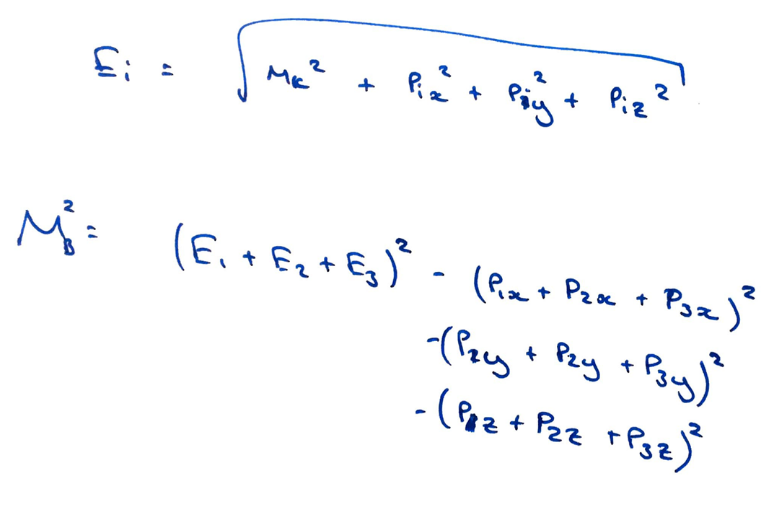 Ei = √(MK² + Pix² + Piy² + Piz²)
MB² = (E1 + E2 + E3)² - (P1x + P2x + P3x)²
-(P2y + P2y + P3y)²
-(P1z + P2z + P3z)²